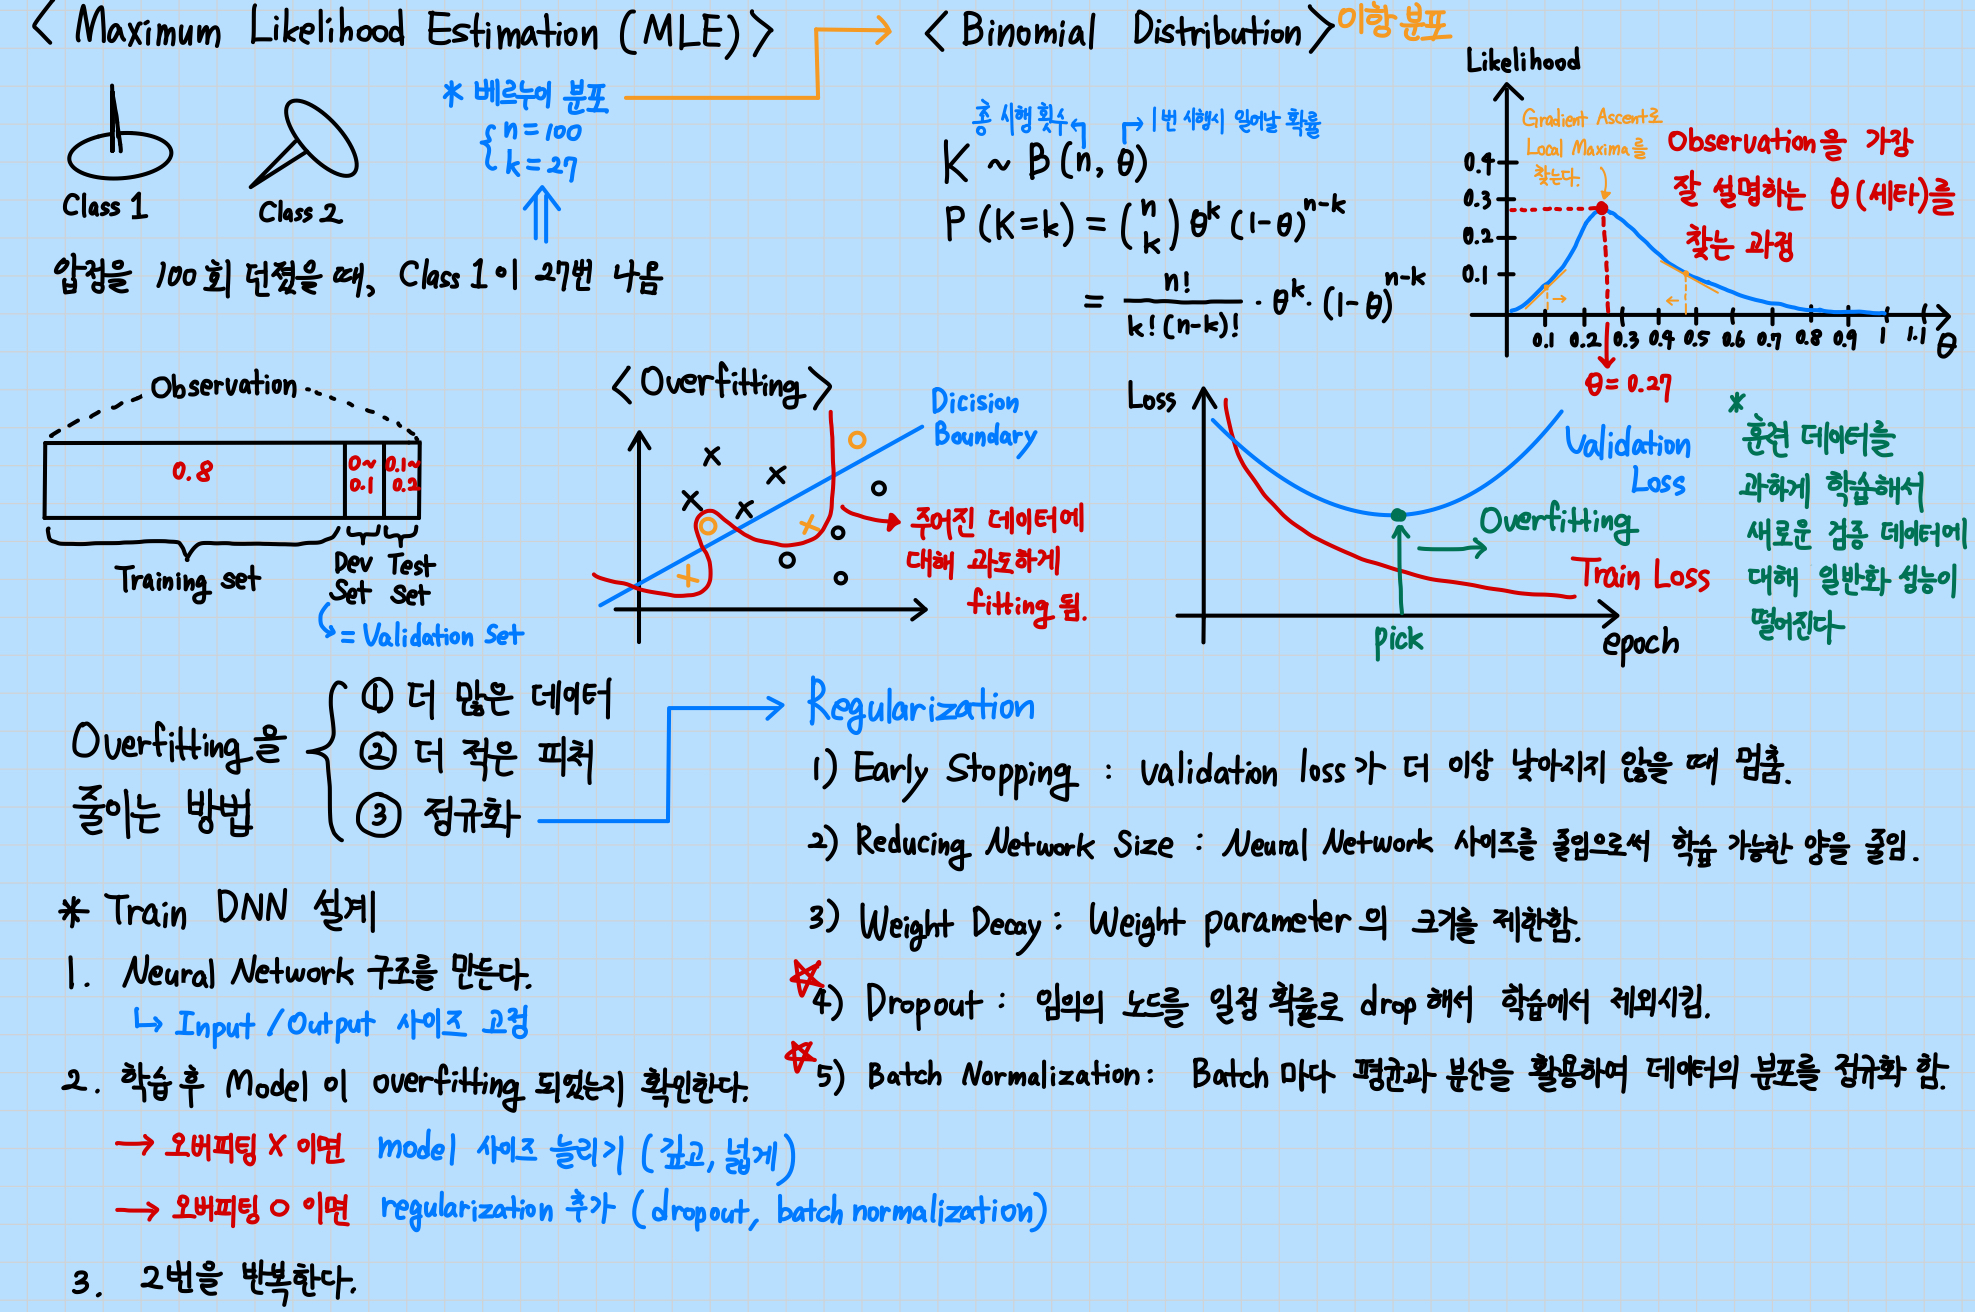 < Maximum Likelihood Estimation (MLE) >
Class 1
Class 2
* 베르누이 분포
n = 100
k = 27
압정을 100회 던졌을 때, Class 1이 27번 나옴
< Binomial Distribution > 이항 분포
총 시행 횟수
1번 시행시 일어날 확률
K ~ B (n, θ)
P (K=k) = (n k) θ^k (1-θ)^n-k
= n! / k!(n-k)! · θ^k · (1-θ)^n-k
Likelihood
Gradient Ascent로
Local Maxima를
찾는다.
Observation을 가장
잘 설명하는 θ(세타)를
찾는 과정
0.4
0.3
0.2
0.1
0.1 0.2 0.3 0.4 0.5 0.6 0.7 0.8 0.9 1 1.1 θ
θ = 0.27
Observation
0.8
0~
0.1
0.1~
0.2
Training set
Dev
Set
Test
Set
= Validation Set
< Overfitting >
Dicision
Boundary
주어진 데이터에
대해 과도하게
fitting 됨.
Loss
Validation
Loss
Overfitting
Train Loss
pick
epoch
*
훈련 데이터를
과하게 학습해서
새로운 검증 데이터에
대해 일반화 성능이
떨어진다
Overfitting을
줄이는 방법
① 더 많은 데이터
② 더 적은 피처
③ 정규화
Regularization
1) Early Stopping : validation loss가 더 이상 낮아지지 않을 때 멈춤.
2) Reducing Network Size : Neural Network 사이즈를 줄임으로써 학습 가능한 양을 줄임.
3) Weight Decay : Weight parameter의 크기를 제한함.
4) Dropout : 임의의 노드를 일정 확률로 drop해서 학습에서 제외시킴.
5) Batch Normalization : Batch 마다 평균과 분산을 활용하여 데이터의 분포를 정규화 함.
* Train DNN 설계
1. Neural Network 구조를 만든다.
↳ Input / Output 사이즈 고정
2. 학습 후 Model이 overfitting 되었는지 확인한다.
→ 오버피팅 X 이면 model 사이즈 늘리기 (깊고, 넓게)
→ 오버피팅 O 이면 regularization 추가 (dropout, batch normalization)
3. 2번을 반복한다.